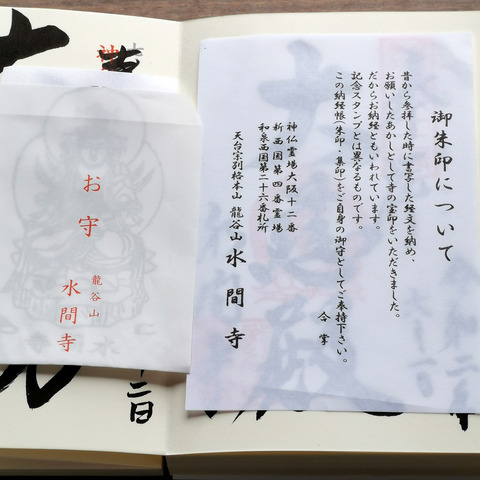 御朱印について
昔から参拝した時に書写した経文を納め、
お願いしたあかしとして寺の宝印をいただきました。
だからお納経ともいわれています。
記念スタンプとは異なるものです。
この納経帳(朱印・集印)をご自身の御守としてご奉持下さい。
合掌
神仏霊場大阪十二番
新西国第四番霊場
和泉西国第二十六番札所
天台宗別格本山 龍谷山 水間寺
お守
龍谷山
水間寺
二日